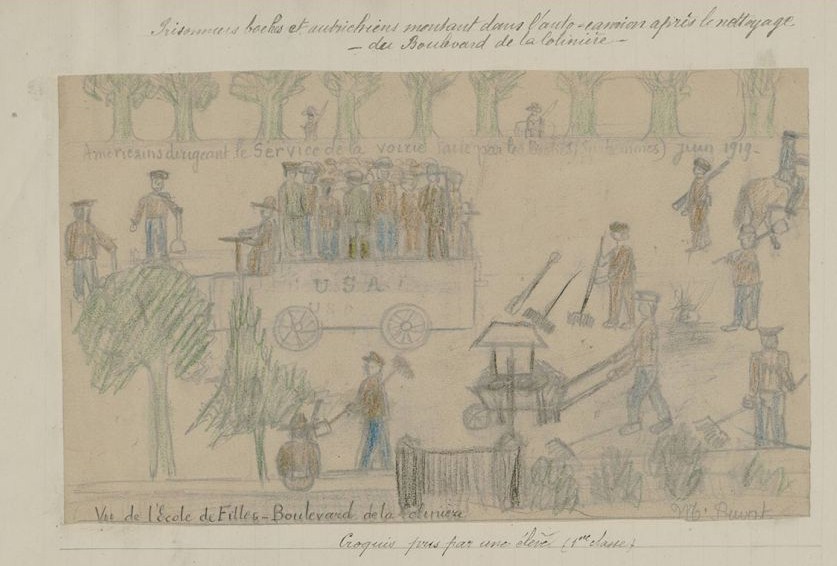 Prisonniers boches et autrichiens montant dans l'auto-camion après le nettoyage
- du Boulevard de la Colinière -
Américains dirigeant le Service de la voirie faite par les Boches ( ) juin 1919-
U S A
U S A
Vu de l'Ecole de Filles - Boulevard de la Colinière
M.
Croquis pris par une élève (1re classe)